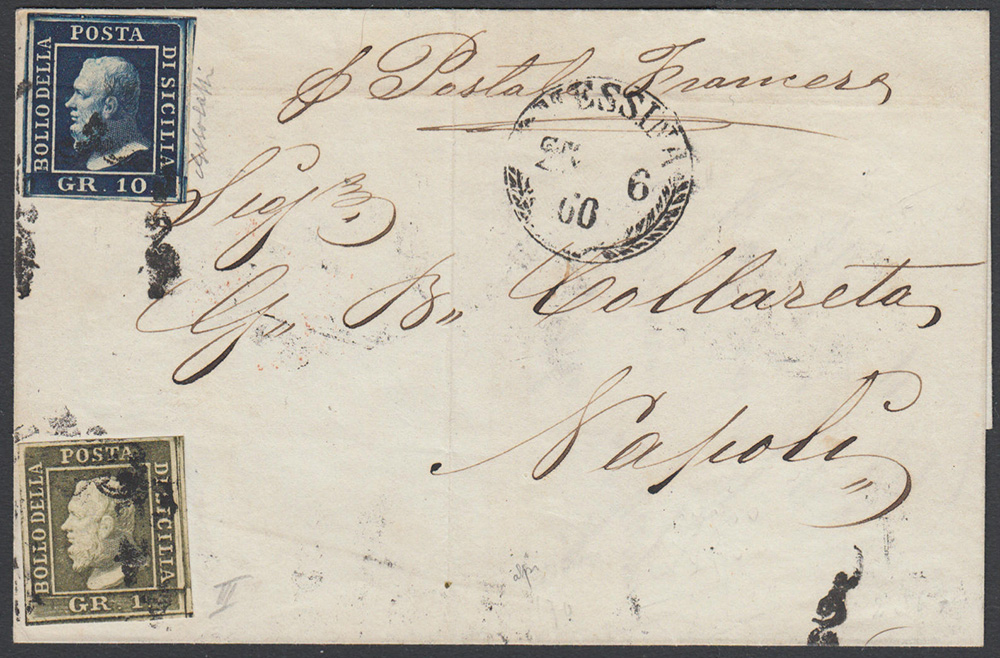 POSTA
BOLLO DELLA
DI SICILIA
GR. 10
p Postale Francese
MESSINA
6
60
Sigr
Gio B. Collareta
Napoli
POSTA
BOLLO DELLA
DI SICILIA
GR. 1
III